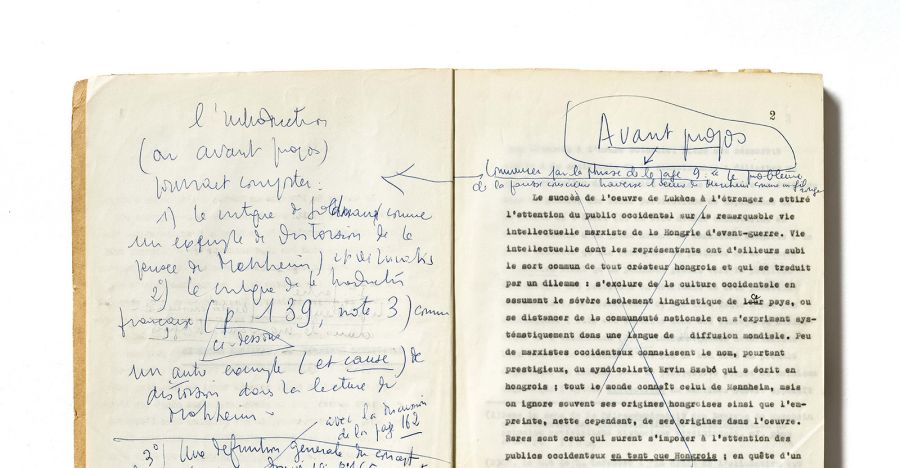 l'introduction
(ou avant propos)
pourrait comporter :
1) la critique de Goldmann (comme
un exemple de distorsion de la
pensée de Mannheim) et de Lukács
2°) la critique de la traduction
française (p 139, note 3) comme
ci-dessous
un autre exemple (et cause) de
distorsion dans la lecture de
Mannheim -
avec la discussion
de la page 162
3°) Une définition générale du concept
2
Avant propos
Commencer par la phrase de la page 9 : " le problème
de la fausse conscience traverse l'œuvre de Mannheim comme un fil
Le succès de l'oeuvre de Lukàcs à l'étranger a attiré
l'attention du public occidental sur la remarquable vie
intellectuelle marxiste de la Hongrie d'avant-guerre. Vie
intellectuelle dont les représentants ont d'ailleurs subi
le sort commun de tout créateur hongrois et qui se traduit
par un dilemme : s'exclure de la culture occidentale en
assumant le sévère isolement linguistique de pays, ou
se distancer de la communauté nationale en s'expriment sys-
tématiquement dans une langue de diffusion mondiale. Peu
de marxistes occidentaux connaissent le nom, pourtant
prestigieux, du syndicaliste Ervin Szabó qui a écrit en
hongrois ; tout le monde connaît celui de Mannheim, mais
on ignore souvent ses origines hongroises ainsi que l'em-
preinte, nette cependant, de ses origines dans l'oeuvre.
Rares sont ceux qui surent s'imposer à l'attention des
publics occidentaux en tant que Hongrois ; en quête d'un